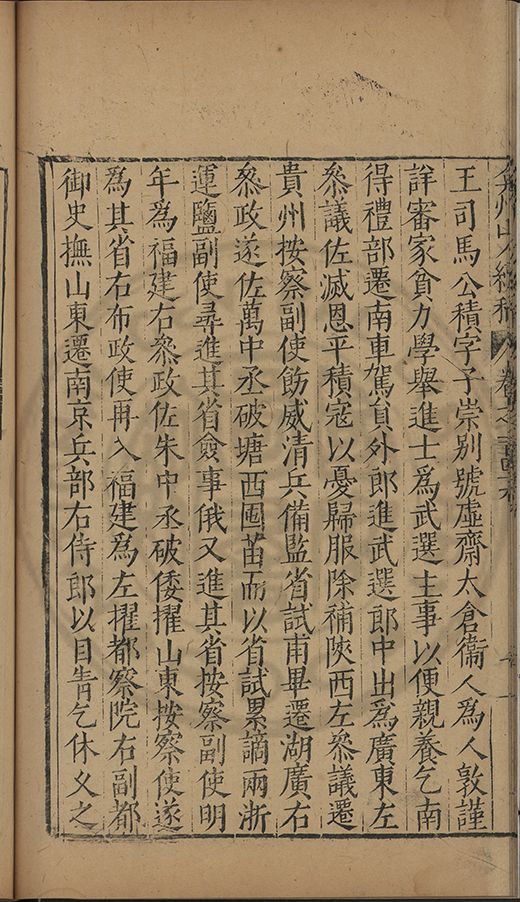 弇州山人續稿 卷之一百四十六
王司馬公積字子崇别號虛齋太倉衞人爲人敦謹
詳審家貧力學舉進士爲武選主事以便親養乞南
得禮部遷南車駕員外郎進武選郎中出爲廣東左
叅議佐滅恩平積寇以憂歸服除補陝西左叅議遷
貴州按察副使飭威清兵備監省試甫畢遷湖廣右
叅政遂佐萬中丞破塘西囤苗而以省試累謫兩浙
運鹽副使尋進其省僉事俄又進其省按察副使明
年爲福建右叅政佐朱中丞破倭擢山東按察使遂
爲其省右布政使再入福建爲左擢都察院右副都
御史撫山東遷南京兵部右侍郎以目眚乞休乂之